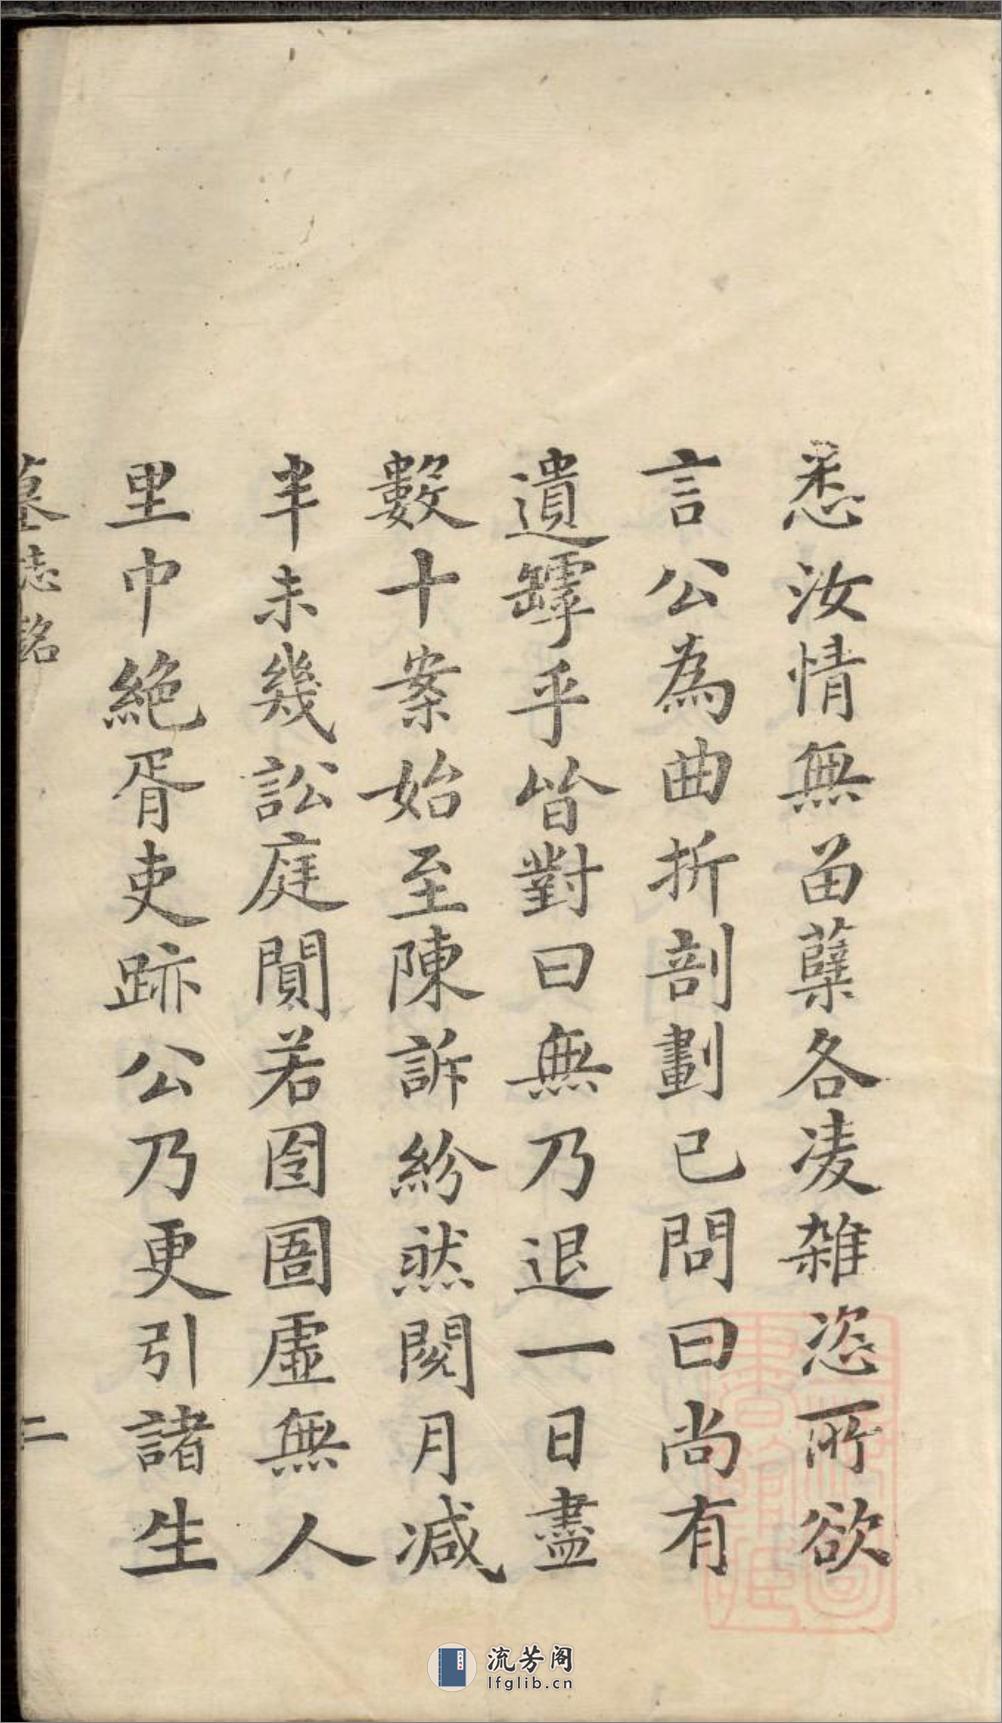 悉汝情無畱蘖各凌雜恣所欲
言公為曲折剖劃已問曰尚有
遺罅乎皆對曰無乃退一日盡
數十案始至陳訴紛然閱月减
半未幾訟庭闃若囹圄虛無人
里巾絕胥吏跡公乃更引諸生
墓志銘
二
流芳阁
lfglib.cn